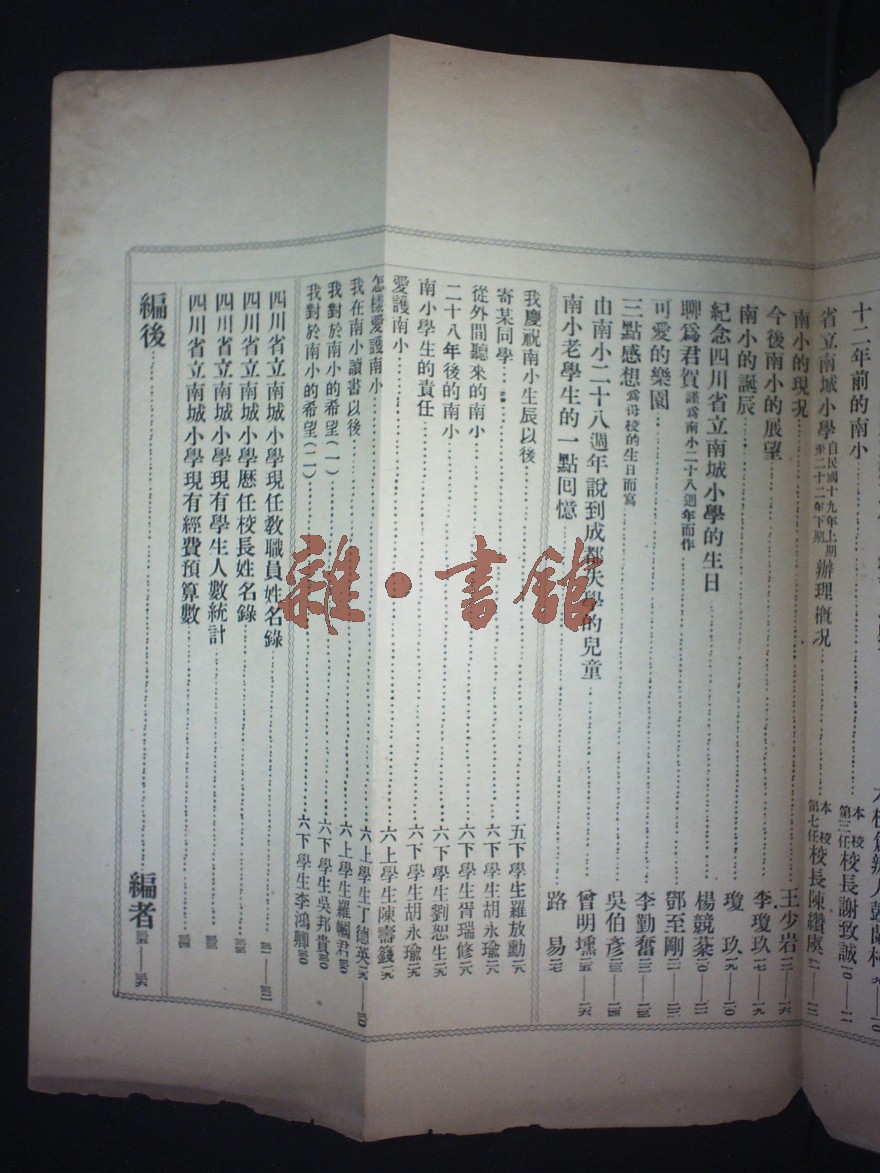 十二年前的南小……本校第三任校長謝致誠 一〇——一一
省立南城小學自民國十九年上期至二十二年下期辦理概况……本校第七任校長陳纘虞
南小的現况……王少岩
今後南小的展望……李瓊玖 一七——一九
南小的誕辰……瓊玖 一九——二〇
紀念四川省立南城小學的生日……楊競棻
聊爲君賀 謹爲南小二十八週年而作……鄧至剛
可愛的樂園……李勤奮
三點感想 爲母校的生日而寫……吳伯彥
由南小二十八週年說到成都失學的兒童……曾明壎
南小老學生的一點回憶……路易
我慶祝南小生辰以後……五下學生羅放勳
寄某同學……六下學生胡永瑜
從外間聽來的南小……六下學生胥瑞修
二十八年後的南小……六下學生劉恕生
南小學生的責任……六下學生胡永瑜
愛護南小……六上學生陳壽籛
怎樣愛護南小……六上學生丁德英
我在南小讀書以後……六上學生羅幗君
我對於南小的希望(一)……六下學生吳邦貴
我對於南小的希望(二)……六下學生李鴻卿
四川省立南城小學現任教職員姓名錄
四川省立南城小學歷任校長姓名錄
四川省立南城小學現有學生人數統計
四川省立南城小學現有經費預算數
編後……編者
雜·書館